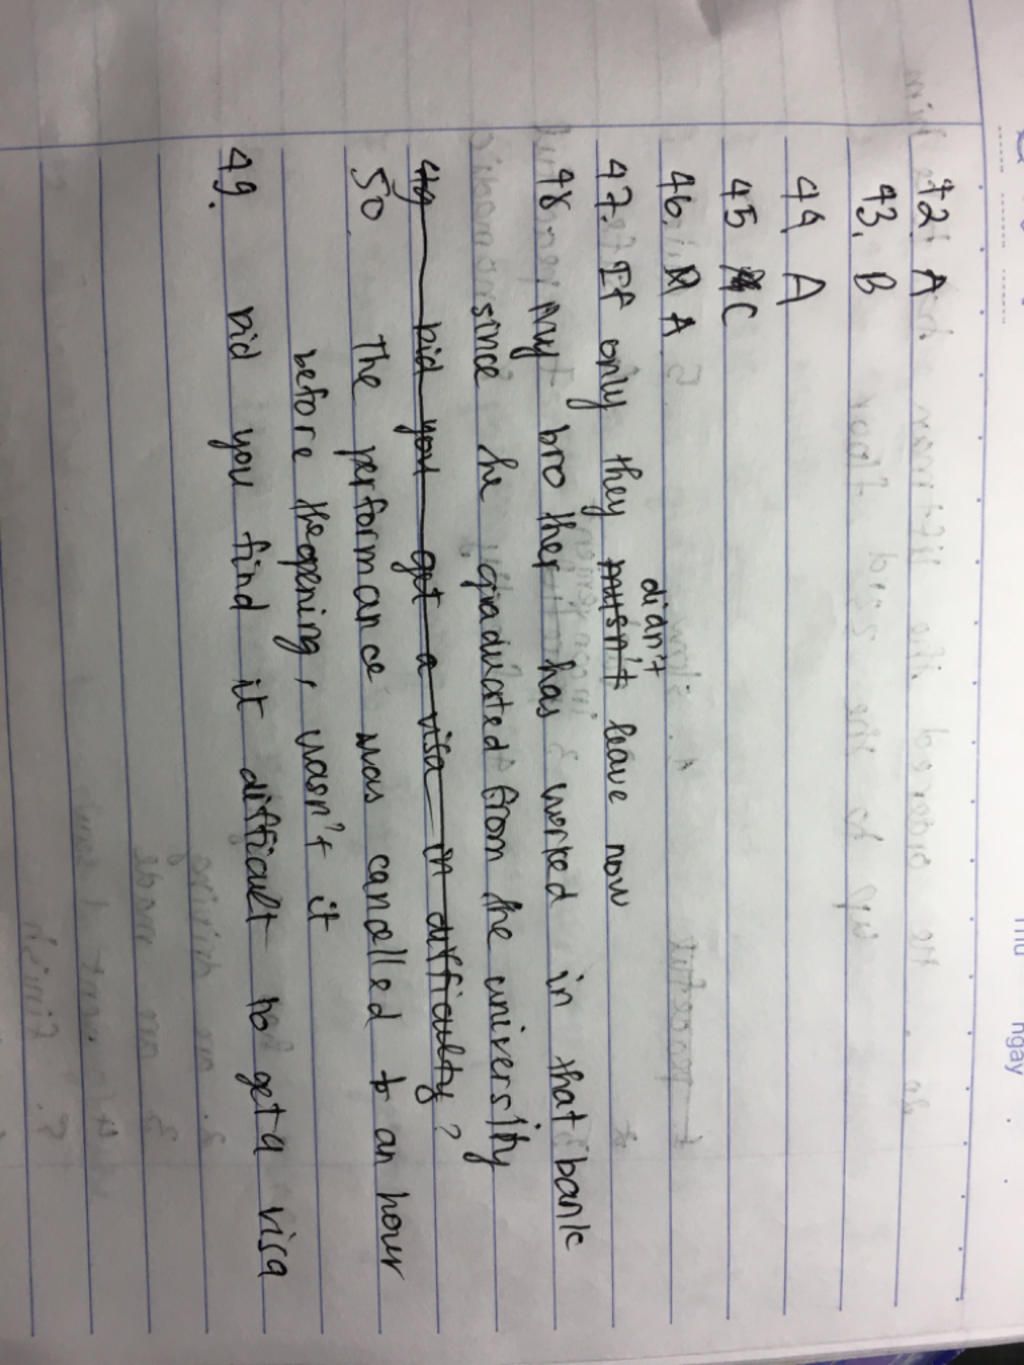 Thứ ngày
42. A
43. B
44 A
45 C
46. A
didn't
47. If only they mutsn't leave now
48. My brother has worked in that bank
since he graduated from the university
49 Did you get a visa in difficulty?
50. The performance was cancelled to an hour
before the opening, wasn't it
49. Did you find it difficult to get a visa